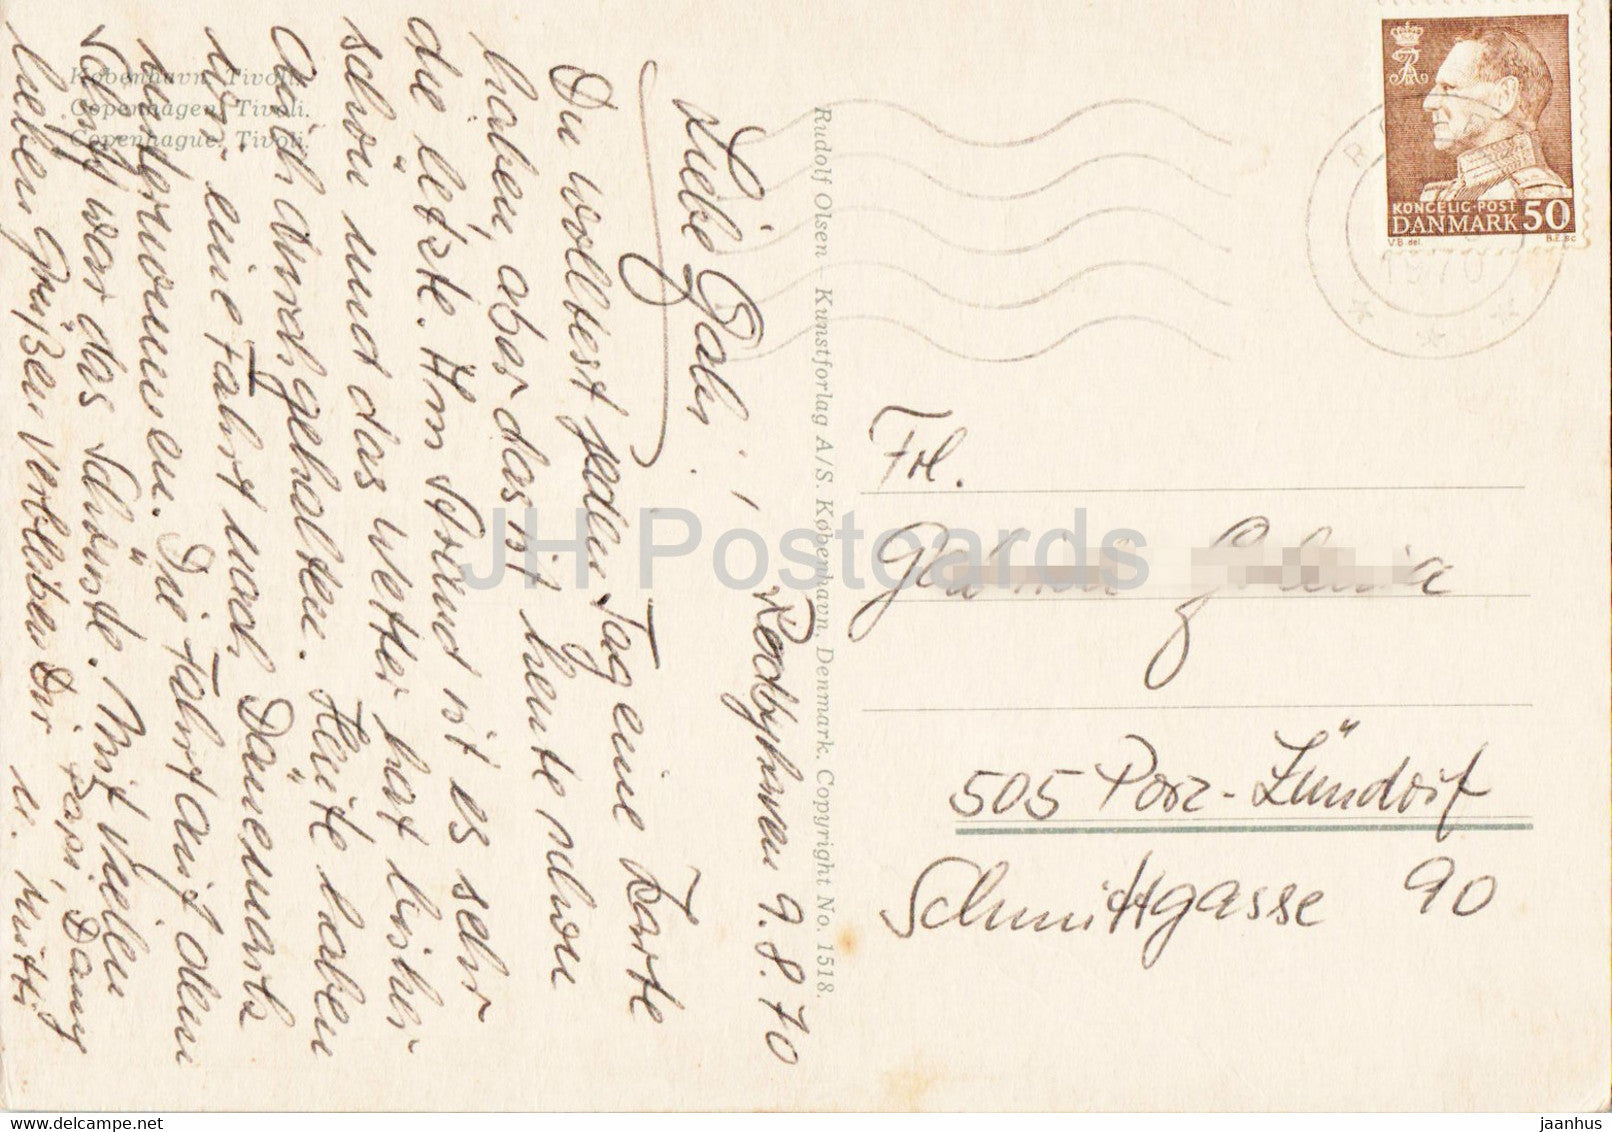 København. Tivoli.
Copenhagen. Tivoli.
Copenhague. Tivoli.
Rødbyhavn 9.8.70
Liebe Gabi!
Du wolltest jeden Tag eine Karte
haben, aber das ist heute schon
die letzte. Am Strand ist es sehr
schön und das Wetter hat bisher
auch durchgehalten. Heute haben
wir eine Fahrt nach Dänemark
übernommen. Die Fahrt auf dem
Schiff war das Schönste. Mit vielen
lieben Grüßen verbleiben Dir Papi, Dany
u. Mutti
Rudolf Olsen - Kunstforlag A/S. København, Denmark. Copyright No. 1518.
KONGELIG POST
DANMARK 50
V.B. del. B.E. sc
1970
Frl.
505 Porz-Zündorf
Schmittgasse 90
JH Postcards
jaanhus